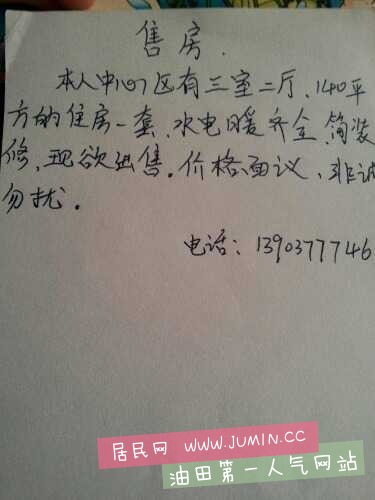 售房.
本人中心7区有三室二厅、140平
方的住房一套、水电暖齐全、简装
修、现欲出售。价格面议、非诚
勿扰。
电话：1390377746
居民网 WWW.JUMIN.CC
油田第一人气网站